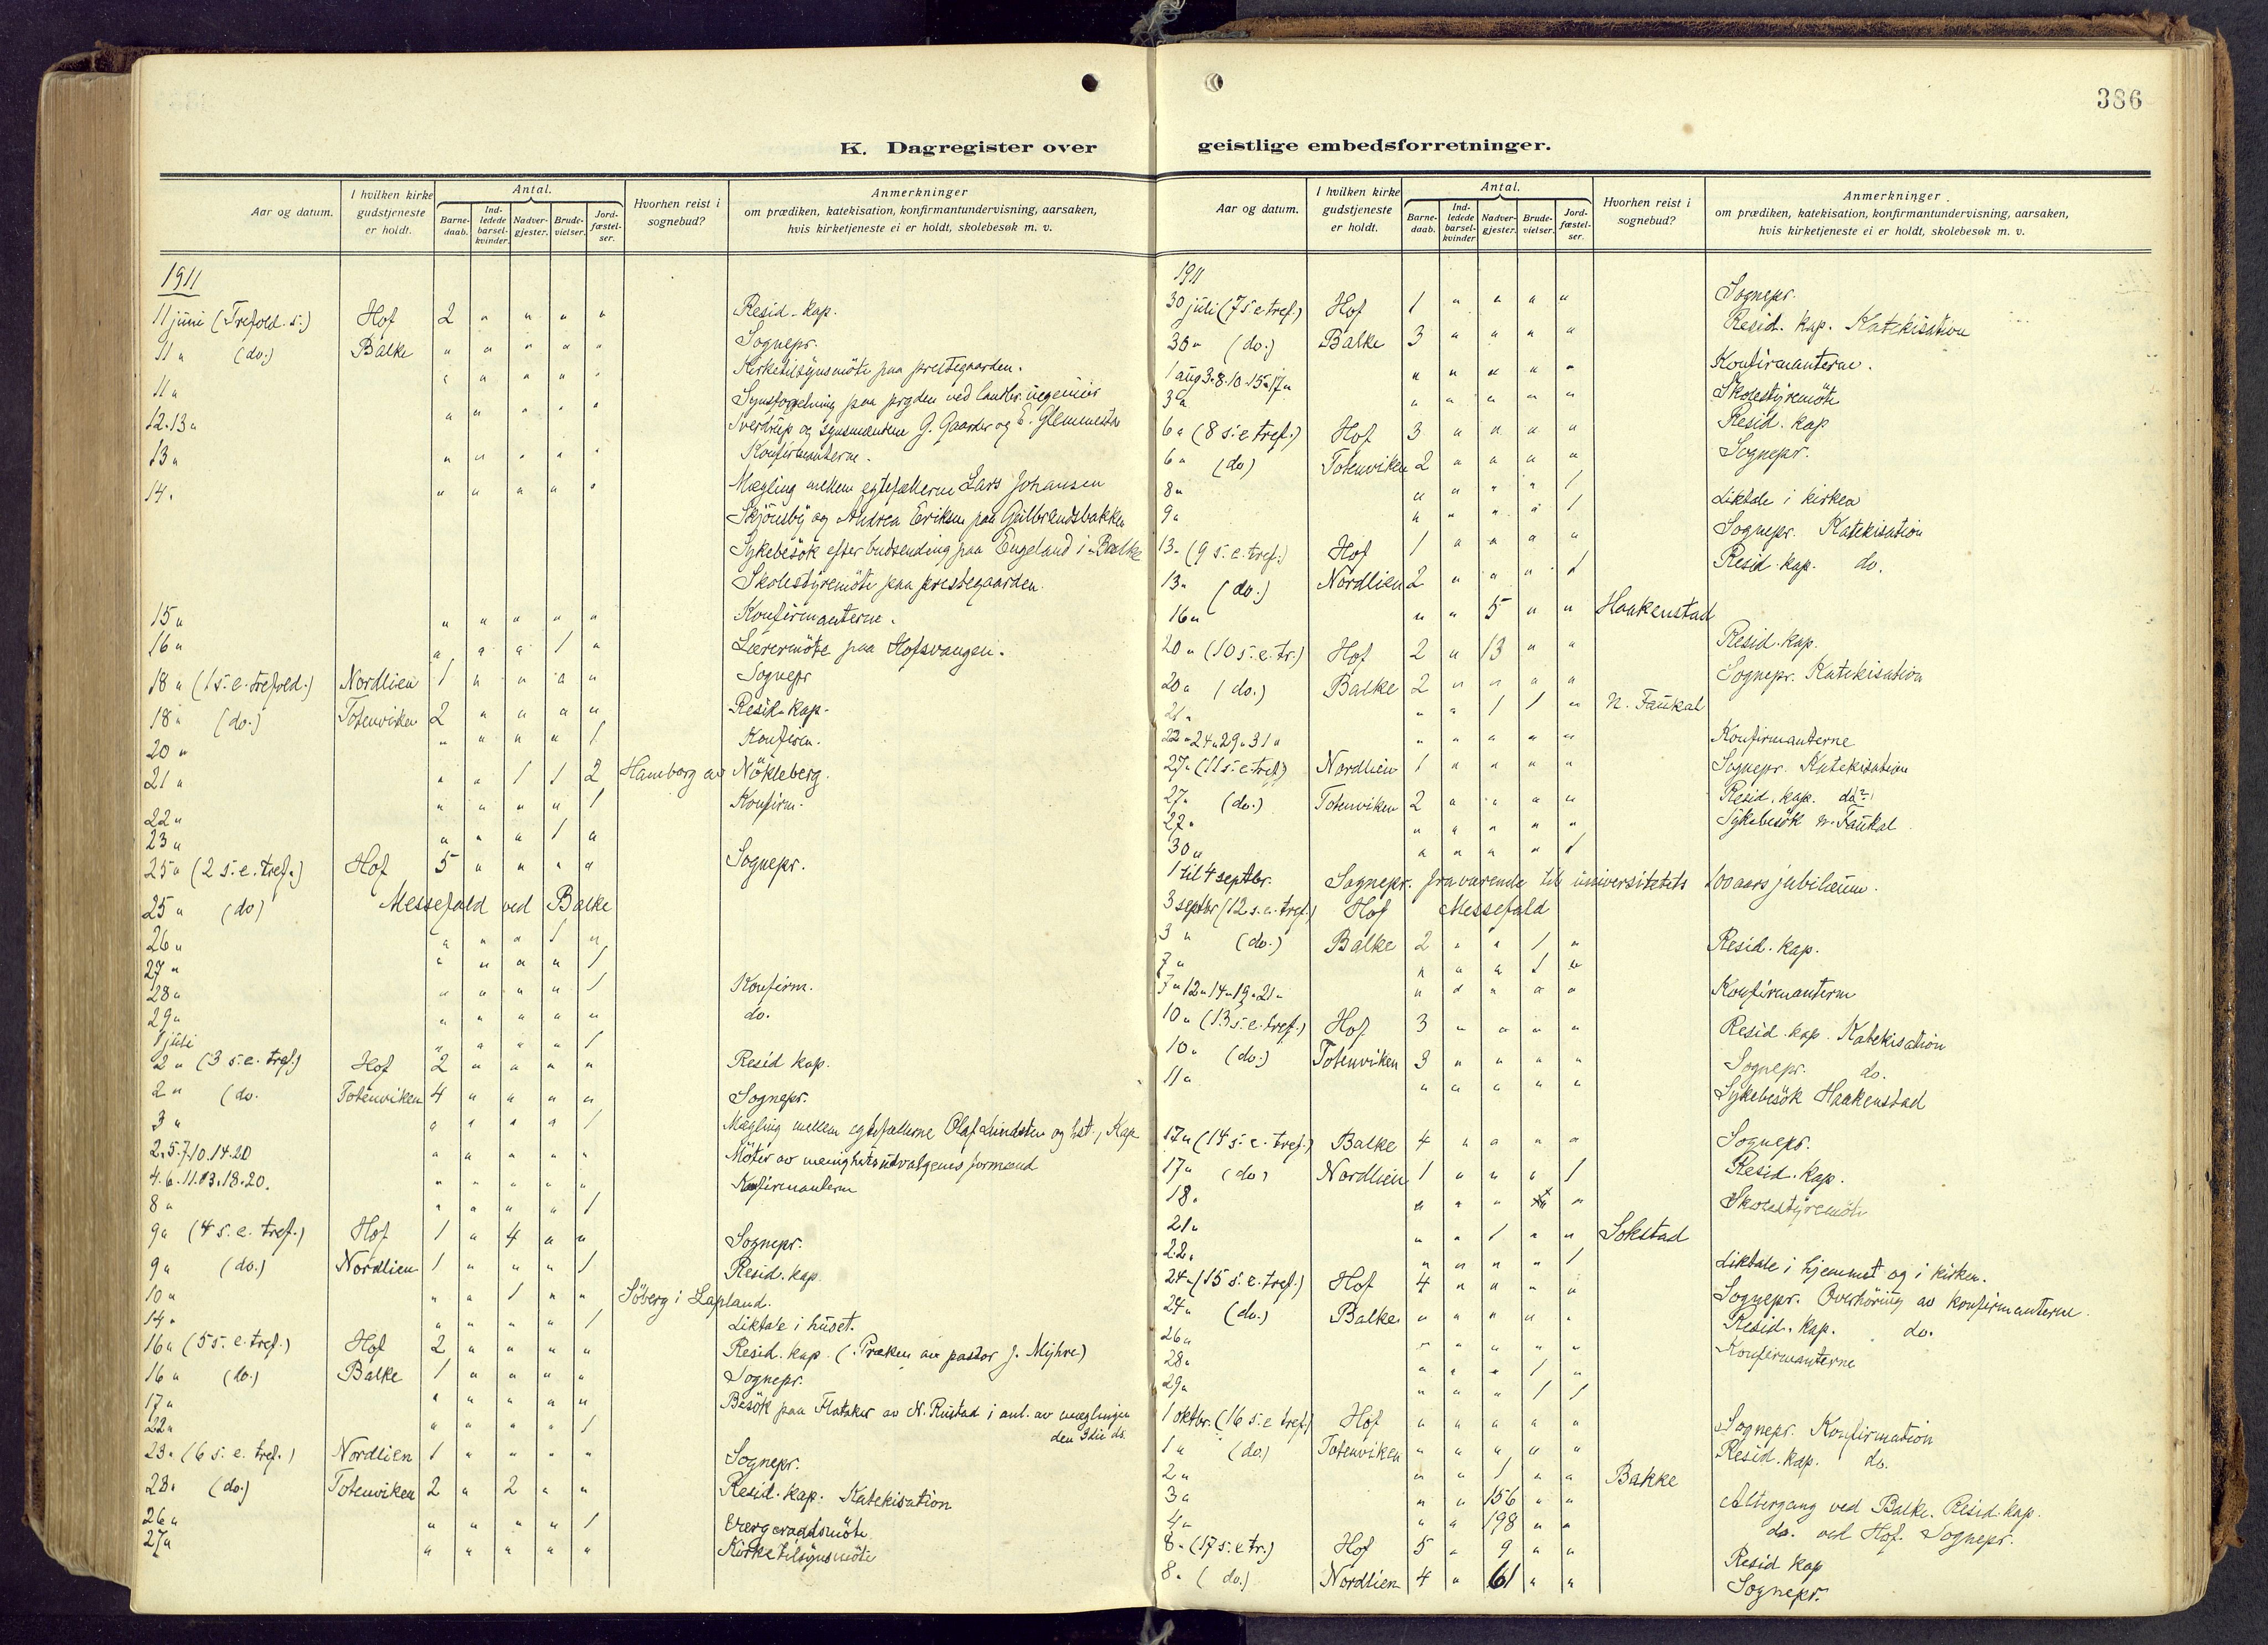 386
K. Dagregister over
Aar og datum. I hvilken kirke gudstjeneste er holdt. Antal. Barnedaab. Indledede barselkvinder. Nadvergjester. Brudevielser. Jordfæstelser. Hvorhen reist i sognebud? Anmerkninger om prædiken, katekisation, konfirmantundervisning, aarsaken, hvis kirketjeneste ei er holdt, skolebesøk m. v.
1911
11 juni (Trefold. s.) Hof 2 " " " " Resid. kap.
11 " (do.) Balke " " " " " Sognepr.
11 " " " " " " Kirketilsynsmöte paa prestegaarden.
12.13 " " " " " " Synsforretning paa prgden ved landbr. ingeniör
Sverdrup og synsmændene J. Gaarder og E. Glemmestad
13 " " " " " " Konfirmanterne.
14. " " " " " Mægling mellem egtefællerne Lars Johansen
Skjöusby og Andrea Eriksen paa Gulbrandsbakken
Sykebesök efter budsending paa Engeland i Balke
Skolestyremöte paa prestegaarden.
15 " " " " " " Konfirmanterne.
16 " " " " 1 " Lærermöte paa Hofsvangen.
18 " (1 s. e. trefold.) Nordlien 1 " " " " Sognepr
18 " (do.) Totenviken 2 " " " " Resid. kap.
20 " " " " " 1 Konfirm.
21 " " " 1 1 2 Hamborg av Nökleberg.
22 " " " " " 1 Konfirm.
23 " " " " 1 "
25 " (2 s. e. tref.) Hof 5 " " " " Sognepr.
25 " (do) Messefald ved Balke
26 " " " " 1 "
27 " " " " " 1
28 " " " " " 1 Konfirm.
29 " " " " " " do.
1 juli " " " " 1
2 " (3 s. e. tref) Hof 2 " " " " Resid kap.
2 " (do. Totenviken 4 " " " " Sognepr.
3 " " " " " 1 Mægling mellem egtefællerne Olaf Lindsten og hst., Kap
2.5.7.10.14.20 " " " " " Möter av menighetsutvalgenes formænd
4.6.11.13.18.20. " " " " " Konfirmanterne
8 " " " " " 1
9 " (4 s. e. tref.) Hof 1 " 4 " " Sognepr.
9 " (do.) Nordlien 1 " " " 1 Resid. kap.
10 " " " 1 " " Söberg i Lapland.
14 " " " " " 1 Liktale i huset.
16 " (5 s. e. tref.) Hof 2 " " " " Resid. kap. (Præken av pastor J. Myhre)
16 " (do.) Balke 1 " " " " Sognepr.
17 " " " " " " Besök paa Flataker av N. Rustad i anl. av mæglingen
22 " " " " " 1 den 3die ds.
23 " (6 s. e. tref.) Nordlien 1 " " " " Sognepr.
23 " (do.) Totenviken 2 " 2 " " Resid. kap. Katekisation
26 " " " " " 1 Vergeraadsmöte
27 " " " " " " Kirketilsynsmöte
geistlige embedsforretninger.
Aar og datum. I hvilken kirke gudstjeneste er holdt. Antal. Barnedaab. Indledede barselkvinder Nadvergjester. Brudevielser. Jordfæstelser. Hvorhen reist i sognebud? Anmerkninger. om prædiken, katekisation, konfirmantundervisning, aarsaken, hvis kirketjeneste ei er holdt, skolebesøk m. v.
1911
30 juli (7 s. e tref.) Hof 1 " " " " Sognepr.
30 " (do.) Balke 3 " " " " Resid. kap. Katekisation
1 aug 3.8.10.15.17 " " " " " " Konfirmanterne.
3 " " " " " " Skolestyremöte
6 " (8 s. e tref.) Hof 3 " " " " Resid. kap
6 " (do) Totenviken 2 " " " " Sognepr.
8 " " " " " 1
9 " " " " " 1 Liktale i kirken
13 " (9 s. e. tref.) Hof 1 " " " " Sognepr. Katekisation
13 " (do.) Nordlien 2 " " " 1 Resid. kap. do.
16 " " " 5 " " Haakenstad
20 " (10 s. e. tr.) Hof 2 " 13 " " Resid. kap.
20 " (do.) Balke 2 " " " " Sognepr. Katekisation
21 " " " 1 1 " N. Faukal
22 " 24 " 29 " 31 " " " " " " Konfirmanterne
27 " (11 s. e tref) Nordlien 1 " " " " Sognepr. Katekisation
27 " (do.) Totenviken 2 " " " " Resid. kap. do
27 " " " " " " Sykebesök N. Faukal
30 " " " " " 1
1 til 4 septbr. Sognepr. fraværende til universitetets 100 aars jubilæum.
3 septbr (12 s. e. tref.) Hof Messefald
3 " (do.) Balke 2 " " 1 " Resid. kap.
7 " " " " 1 "
7 " 12 " 14 " 19 " 21 " " " " " " Konfirmanterne
10 " (13 s. e. tref.) Hof 3 " " " " Resid. kap. Katekisation
10 " (do.) Totenviken 3 " " " " Sognepr. do.
11 " " " " " " Sykebesök Haakenstad
17 " (14 s. e. tref.) Balke 4 " " " " Sognepr.
17 " (do) Nordlien 1 " " " 1 Resid. kap.
18 " " " " " " Skolestyremöte
21 " " " 1 " " Sokstad
22 " " " " " 1 Liktale i hjemmet og i kirken.
24 " (15 s. e. tref.) Hof 4 " " " " Sognepr. Overhöring av konfirmanterne.
24 " (do.) Balke " " " " " Resid. kap. do.
26 " " " " " " Konfirmanterne
28 " " " " 1 "
29 " " " " 1 1
1 oktbr. (16 s. e tref) Hof " " " " " Sognepr. Konfirmation
1 " (do.) Totenviken " " " " " Resid. kap. do.
2 " " " 1 " " Bakke
3 " " " 156 " " Altergang ved Balke. Resid. kap.
4 " " " 198 " " do. ved Hof. Sognepr.
8 " (17 s. e tr.) Hof 5 " 9 " " Resid kap
8 " (do.) Nordlien 4 " 61 " " Sognepr.